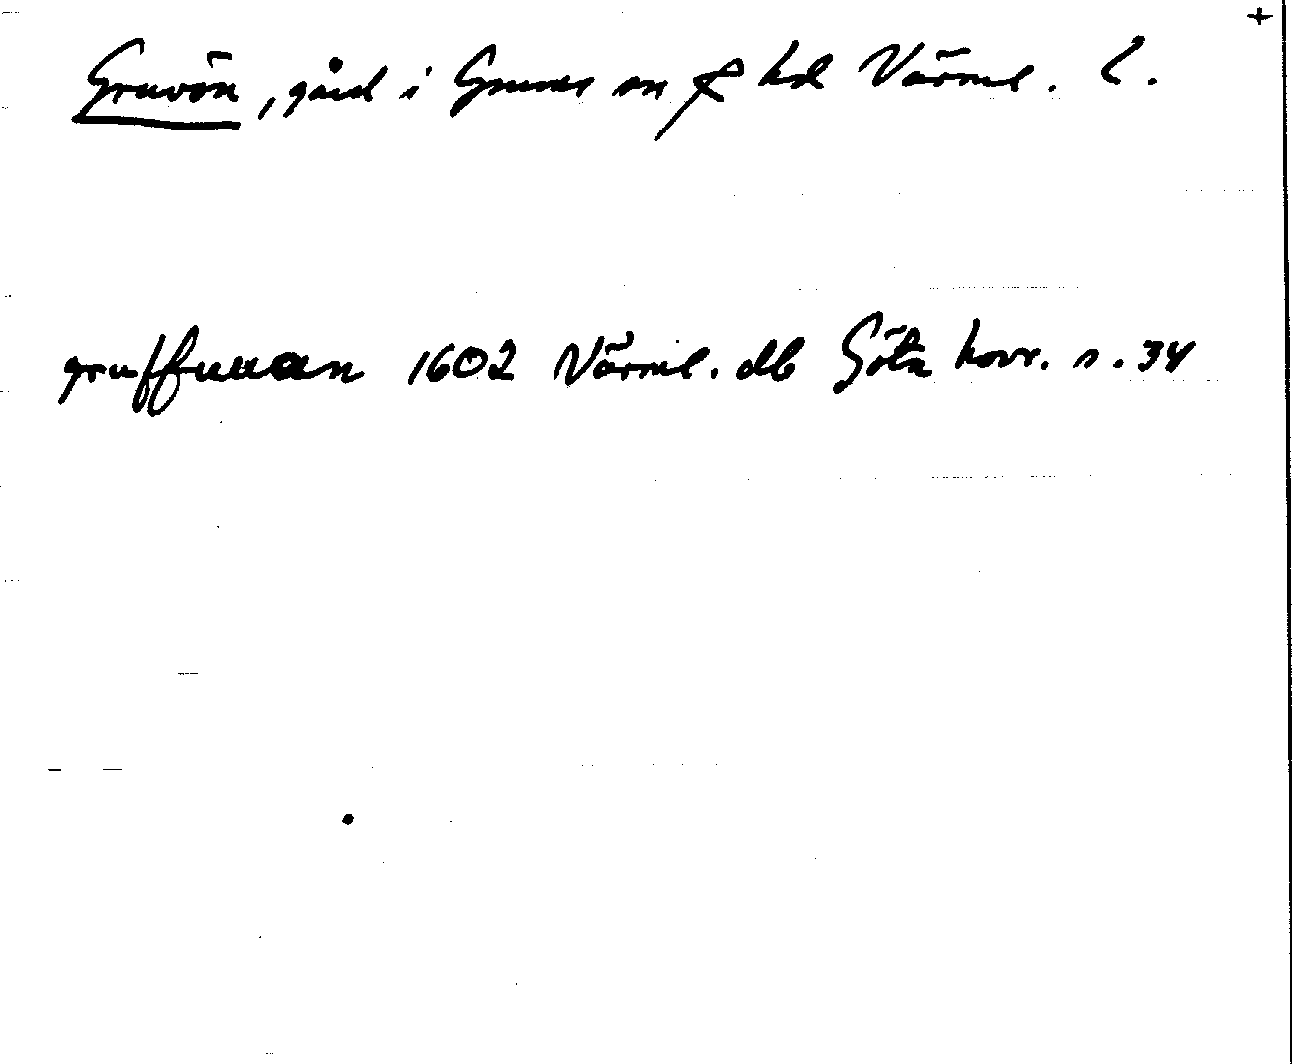 +
Gruvön, gård i Grums sn o hd Värml. l.
gruffuuan 1602 Värml. db Göta hovr. s. 34